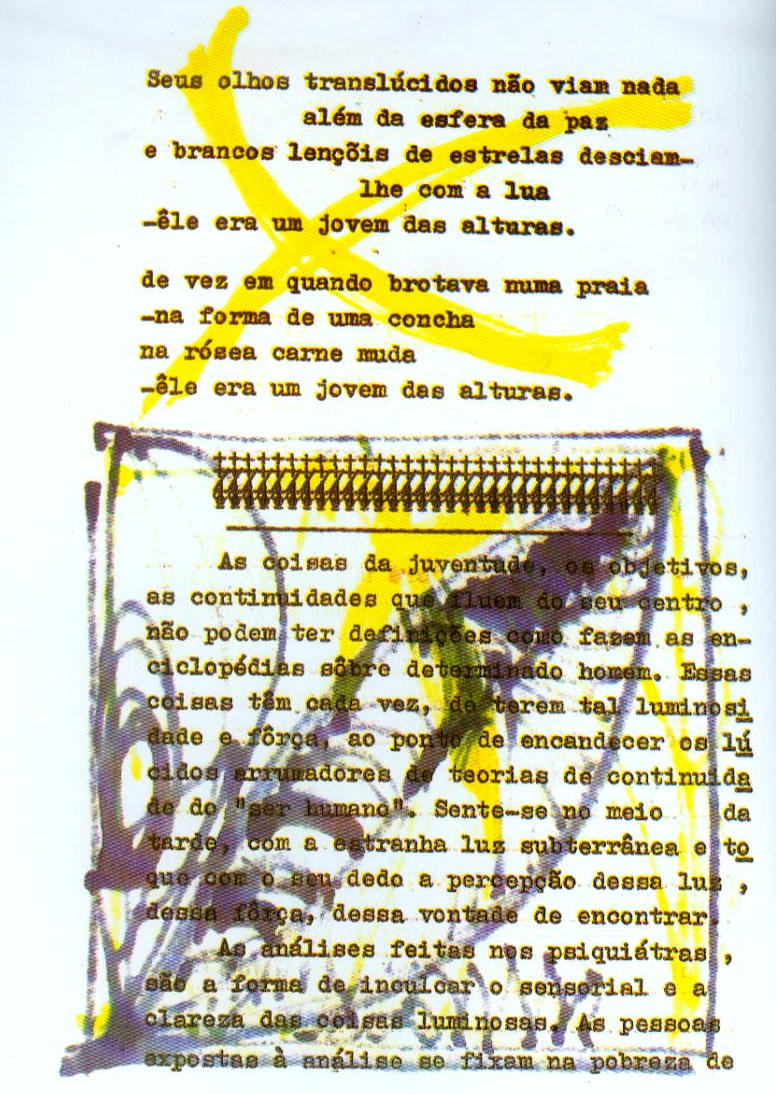 Seus olhos translúcidos não viam nada
além da esfera da paz
e brancos lençõis de estrelas desciam-
lhe com a lua
-êle era um jovem das alturas.
de vez em quando brotava numa praia
-na forma de uma concha
na rósea carne muda
-êle era um jovem das alturas.
As coisas da juventude, os objetivos,
as continuidades que fluem do seu centro ,
não podem ter definições como fazem as en-
ciclopédias sôbre determinado homem. Essas
coisas têm cada vez, de terem tal luminosi
dade e fôrça, ao ponto de encandecer os lú
cidos arrumadores de teorias de continuida
de do "ser humano". Sente-se no meio da
tarde, com a estranha luz subterrânea e to
que com o seu dedo a percepção dessa luz ,
dessa fôrça, dessa vontade de encontrar.
As análises feitas nos psiquiátras ,
são a forma de inculcar o sensorial e a
clareza das coisas luminosas. As pessoas
expostas à análise se fixam na pobreza de